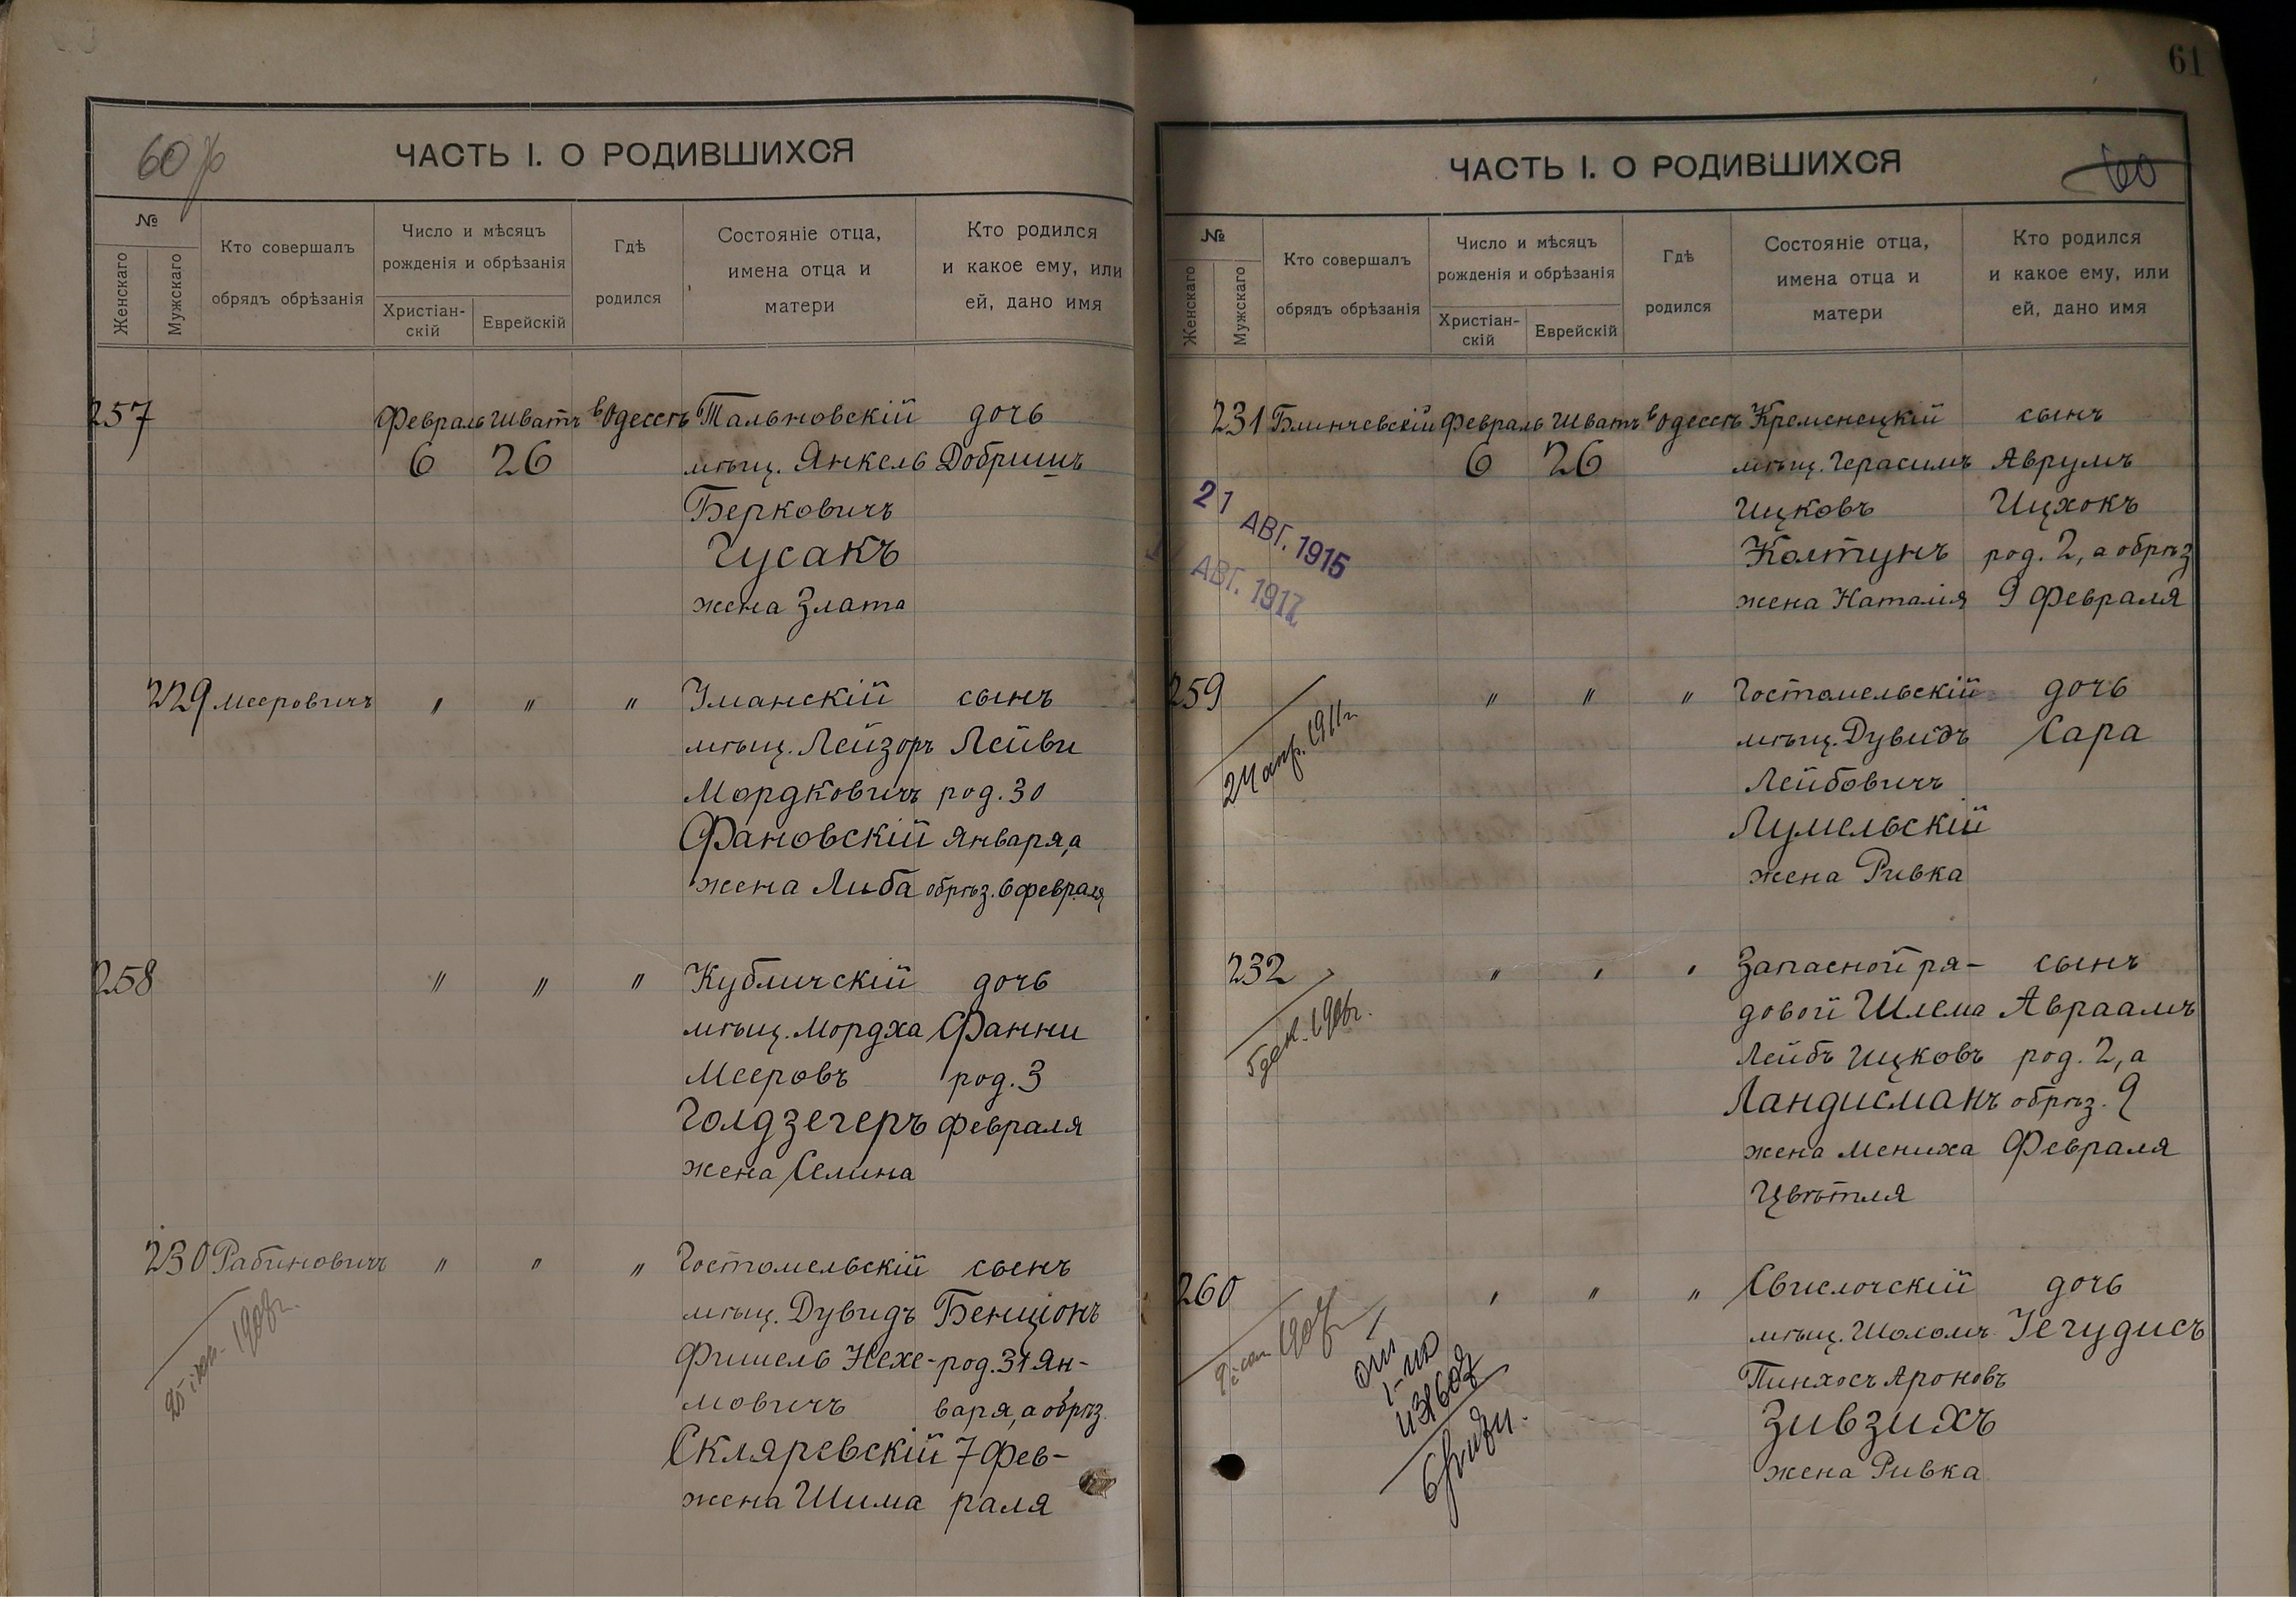 60
ЧАСТЬ I. О РОДИВШИХСЯ
№
Женскаго
Мужскаго
Кто совершалъ
обрядъ обрѣзанія
Число и мѣсяцъ
рожденія и обрѣзанія
Христіан-
скій
Еврейскій
Гдѣ
родился
Состояніе отца,
имена отца и
матери
Кто родился
и какое ему, или
ей, дано имя
257 Февраль Шватъ в Одессѣ Тальновскій дочь
6 26 мѣщ. Янкель Добришъ
Берковичъ
Гусакъ
жена Злата
229 Мееровичъ " " " Уманскій сынъ
мѣщ. Лейзоръ Лейви
Мордковичъ род. 30
Фановскій Января, а
жена Либа обрѣз. 6 февраля
258 " " " Кубличскій дочь
мѣщ. Мордха Фанни
Мееровъ род. 3
Голдзегеръ февраля
жена Селина
230 Рабиновичъ " " " Гостомельскій сынъ
мѣщ. Дувидъ Бенціонъ
Фишель Нехе- род. 31 Ян-
мовичъ варя, а обрѣз.
Скляревскій 7 Фев-
жена Шима раля
1908г.
61
ЧАСТЬ I. О РОДИВШИХСЯ
60
№
Женскаго
Мужскаго
Кто совершалъ
обрядъ обрѣзанія
Число и мѣсяцъ
рожденія и обрѣзанія
Христіан-
скій
Еврейскій
Гдѣ
родился
Состояніе отца,
имена отца и
матери
Кто родился
и какое ему, или
ей, дано имя
231 Блинчевскій Февраль Шватъ в Одессѣ Кременецкій сынъ
6 26 мѣщ. Герасимъ Аврумъ
Ицковъ Ицхокъ
Колтунъ род. 2, а обрѣз
жена Наталія 9 Февраля
21 АВГ. 1915
АВГ. 1917
259 " " " Гостомельскій дочь
мѣщ. Дувидъ Сара
Лейбовичъ
Лумельскій
жена Ривка
24 апр. 1911г.
232 " " " " Запасной ря- сынъ
довой Шлема Авраамъ
Лейбъ Ицковъ род. 2, а
Ландисманъ обрѣз. 9
жена Мениха Февраля
Цвѣтля
5 дек. 1906г.
260 " " " Свислочскій дочь
мѣщ. Шоломъ Іегудисъ
Пинхосъ Ароновъ
Зивзихъ
жена Ривка